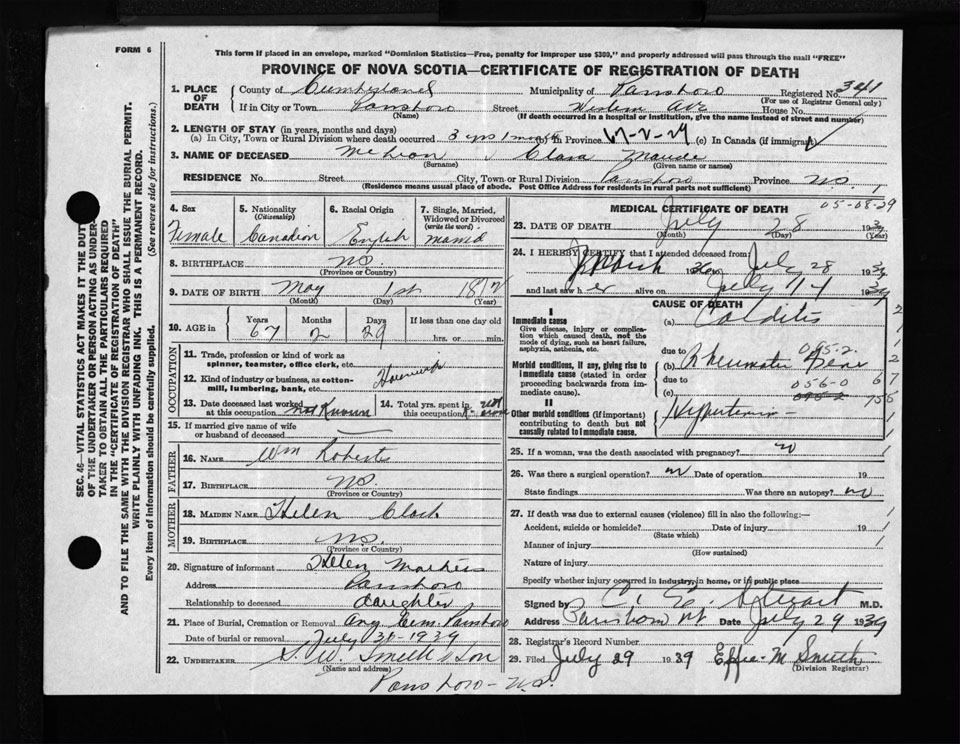 FORM 6
This form if placed in an envelope, marked "Dominion Statistics—Free, penalty for improper use $300," and properly addressed will pass through the mail "FREE"
PROVINCE OF NOVA SCOTIA—CERTIFICATE OF REGISTRATION OF DEATH
1. PLACE OF DEATH
County of Cumberland Municipality of Parrsboro Registered No. 341
(For use of Registrar General only)
If in City or Town Parrsboro Street Western Ave House No.
(Name) (If death occurred in a hospital or institution, give the name instead of street and number)
2. LENGTH OF STAY (in years, months and days)
(a) In City, Town or Rural Division where death occurred 3 yrs 1 month (b) In Province 67-2-29 (c) In Canada (if immigrant)
3. NAME OF DECEASED McLean Clara Maude
(Surname) (Given name or names)
RESIDENCE No. Street City, Town or Rural Division Parrsboro Province N.S.
(Residence means usual place of abode. Post Office Address for residents in rural parts not sufficient)
4. Sex Female
5. Nationality (Citizenship) Canadian
6. Racial Origin English
7. Single, Married, Widowed or Divorced (write the word) married
8. BIRTHPLACE N.S.
(Province or Country)
9. DATE OF BIRTH May 1st 1872
(Month) (Day) (Year)
10. AGE in Years 67 Months 2 Days 29 If less than one day old hrs. or min.
OCCUPATION
11. Trade, profession or kind of work as spinner, teamster, office clerk, etc. Housework
12. Kind of industry or business, as cotton-mill, lumbering, bank, etc.
13. Date deceased last worked at this occupation not known
14. Total yrs. spent in this occupation not known
15. If married give name of wife or husband of deceased
FATHER
16. NAME Wm Roberts
17. BIRTHPLACE N.S.
(Province or Country)
MOTHER
18. MAIDEN NAME Helen Clark
19. BIRTHPLACE N.S.
(Province or Country)
20. Signature of informant Helen
Address Parrsboro
Relationship to deceased daughter
21. Place of Burial, Cremation or Removal Cem. Parrsboro
Date of burial or removal July 31-1939
22. UNDERTAKER S. W. Smith & Son
(Name and address)
Parrsboro - N.S.
MEDICAL CERTIFICATE OF DEATH
05-08-29
23. DATE OF DEATH July 28 1939
(Month) (Day) (Year)
24. I HEREBY CERTIFY that I attended deceased from
March 1936 to July 28 1939
and last saw her alive on July 14 1939
CAUSE OF DEATH
I
Immediate cause
Give disease, injury or complication which caused death, not the mode of dying, such as heart failure, asphyxia, asthenia, etc.
(a) Carditis
due to 095-2
Morbid conditions, if any, giving rise to immediate cause (stated in order proceeding backwards from immediate cause).
(b) Rheumatic Fever
due to 056-0
(c) 095-2
II
Other morbid conditions (if important) contributing to death but not causally related to immediate cause.
Hypertension
25. If a woman, was the death associated with pregnancy? no
26. Was there a surgical operation? no Date of operation 19
State findings Was there an autopsy? no
27. If death was due to external causes (violence) fill in also the following:—
Accident, suicide or homicide? Date of injury 19
(State which)
Manner of injury
(How sustained)
Nature of injury
Specify whether injury occurred in industry, in home, or in public place
Signed by Stuart M.D.
Address Parrsboro NS Date July 29 1939
28. Registrar's Record Number
29. Filed July 29 1939 Effie M Smith
(Division Registrar)
SEC. 46—VITAL STATISTICS ACT MAKES IT THE DUTY OF THE UNDERTAKER OR PERSON ACTING AS UNDERTAKER TO OBTAIN ALL THE PARTICULARS REQUIRED IN THE "CERTIFICATE OF REGISTRATION OF DEATH"
AND TO FILE THE SAME WITH THE DIVISION REGISTRAR WHO SHALL ISSUE THE BURIAL PERMIT.
WRITE PLAINLY WITH UNFADING INK. THIS IS A PERMANENT RECORD.
Every item of information should be carefully supplied. (See reverse side for instructions.)